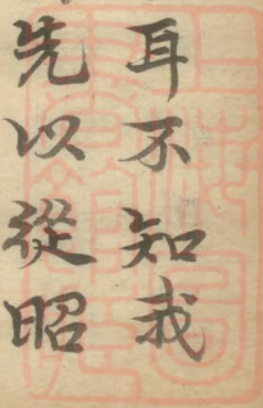 耳不知我
先以從昭